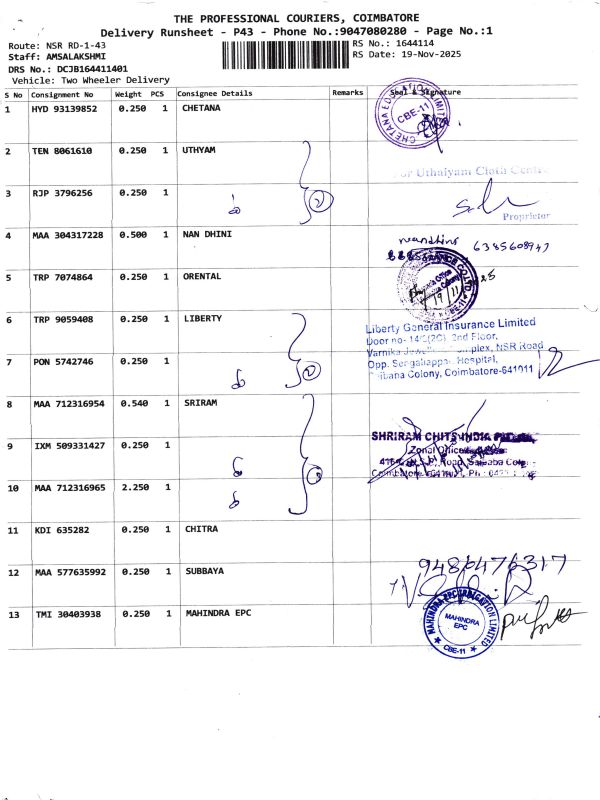 THE PROFESSIONAL COURIERS, COIMBATORE
Delivery Runsheet - P43 - Phone No.:9047080280 - Page No.:1
Route: NSR RD-1-43
RS No.: 1644114
Staff: AMSALAKSHMI
RS Date: 19-Nov-2025
DRS No.: DCJB164411401
Vehicle: Two Wheeler Delivery
S No Consignment No Weight PCS Consignee Details Remarks Seal & Signature
1 HYD 93139852 0.250 1 CHETANA
CBE-11
2 TEN 8061610 0.250 1 UTHYAM
For Uthaiyam Cloth Centre
3 RJP 3796256 0.250 1
Proprietor
4 MAA 304317228 0.500 1 NAN DHINI
nandhini 6385608947
5 TRP 7074864 0.250 1 ORENTAL
6 TRP 9059408 0.250 1 LIBERTY
Liberty General Insurance Limited
Door no- 2nd Floor,
NSR Road
7 PON 5742746 0.250 1
Opp. Hospital,
Colony, Coimbatore-641011
8 MAA 712316954 0.540 1 SRIRAM
SHRIRAM CHITS INDIA
Zonal Office
9 IXM 509331427 0.250 1
Road,
10 MAA 712316965 2.250 1
11 KDI 635282 0.250 1 CHITRA
9486476317
12 MAA 577635992 0.250 1 SUBBAYA
13 TMI 30403938 0.250 1 MAHINDRA EPC
MAHINDRA EPC IRRIGATION LIMITED
MAHINDRA
EPC
CBE-11